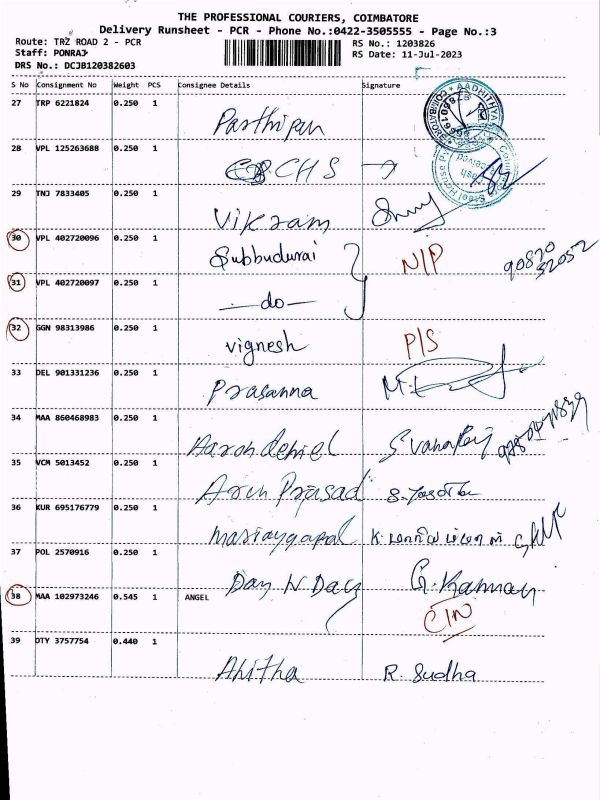 THE PROFESSIONAL COURIERS, COIMBATORE
Delivery Runsheet - PCR - Phone No.:0422-3505555 - Page No.:3
Route: TRZ ROAD 2 - PCR
RS No.: 1203826
Staff: PONRAJ
RS Date: 11-Jul-2023
DRS No.: DCJB120382603
S No Consignment No Weight PCS Consignee Details Signature
27 TRP 6221824 0.250 1
Parthipan
28 VPL 125263688 0.250 1
CHS
29 TNJ 7833405 0.250 1
Vikram
30 VPL 402720096 0.250 1
Subbudurai N/P
31 VPL 402720097 0.250 1
—do—
32 GGN 98313986 0.250 1
vignesh P/S
33 DEL 901331236 0.250 1
Prasanna
34 MAA 860468983 0.250 1
35 VCM 5013452 0.250 1
Arun Prasad
36 KUR 695176779 0.250 1
37 POL 2570916 0.250 1
Day N Day G. Kannan
38 MAA 102973246 0.545 1 ANGEL
39 DTY 3757754 0.440 1
R. Sudha